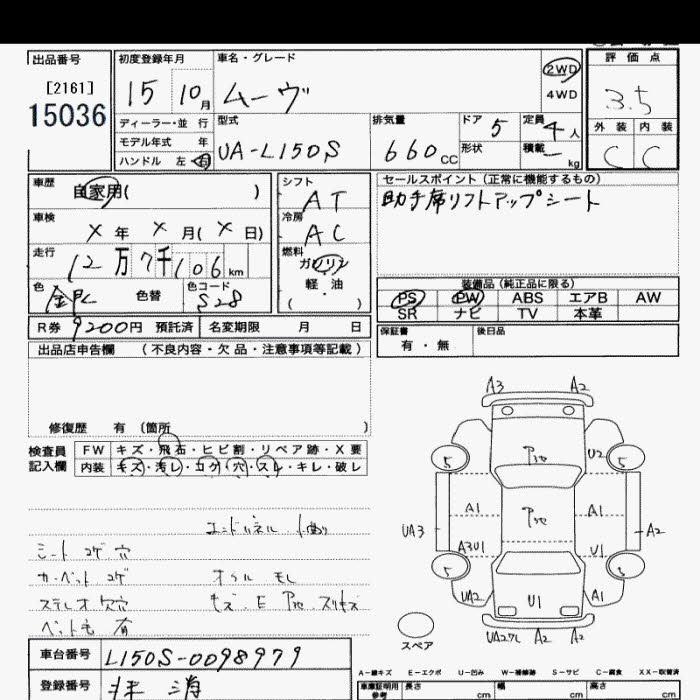 出品番号
[2161]
15036
初度登録年月
15 10月
車名・グレード
ムーヴ
2WD
4WD
評価点
3.5
外装 内装
C C
ディーラー・並行
モデル年式 年
ハンドル 左 右
型式
UA-L150S
排気量
660cc
ドア 5
形状
定員 4人
積載 - kg
車歴
自家用( )
シフト
AT
セールスポイント(正常に機能するもの)
助手席リフトアップシート
車検
X年 X月(X日)
冷房
AC
走行
12万7千106km
燃料
ガソリン
軽・油
( )
色
色替
色コード
S28
装備品(純正品に限る)
PS PW ABS エアB AW
SR ナビ TV 本革
R券 9200円 預託済 名変期限 月 日
保証書
有・無
後日品
出品店申告欄 (不良内容・欠品・注意事項等記載)
修復歴 有 (箇所 )
検査員
記入欄
FW キズ・飛石・ヒビ割・リペア跡・X要
内装 キズ・汚レ・コゲ・穴・スレ・キレ・破レ
シート コゲ 穴
カーペット コゲ
ステレオ穴
ペット毛 有
オイル モレ
A3 A2
5 U2 5
A1 A1
UA3 A2
A3U1 U1
5 5
UA2 U1 A1
A2 A2
スペア
車台番号 L150S-0098979
登録番号
A-線キズ E-エクボ U-凹み W-補修跡 S-サビ C-腐食 XX-取替済
車庫証明用
参考
長さ cm 幅 cm 高さ cm